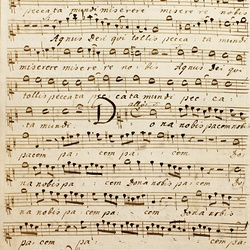 peccata mundi miserere misere re
Agnus dei qui tollis pecca ta mundi
miserere misere re no bis Agnus dei qui
tollis peccata pec cata mundi pec ca
ta mundi. Do na nobis pacem no
pacem pa cem pa cem. do
na nobis pa cem dona nobis pa cem do
na nobis pacem pa cem dona nobis
pa cem pa cem.